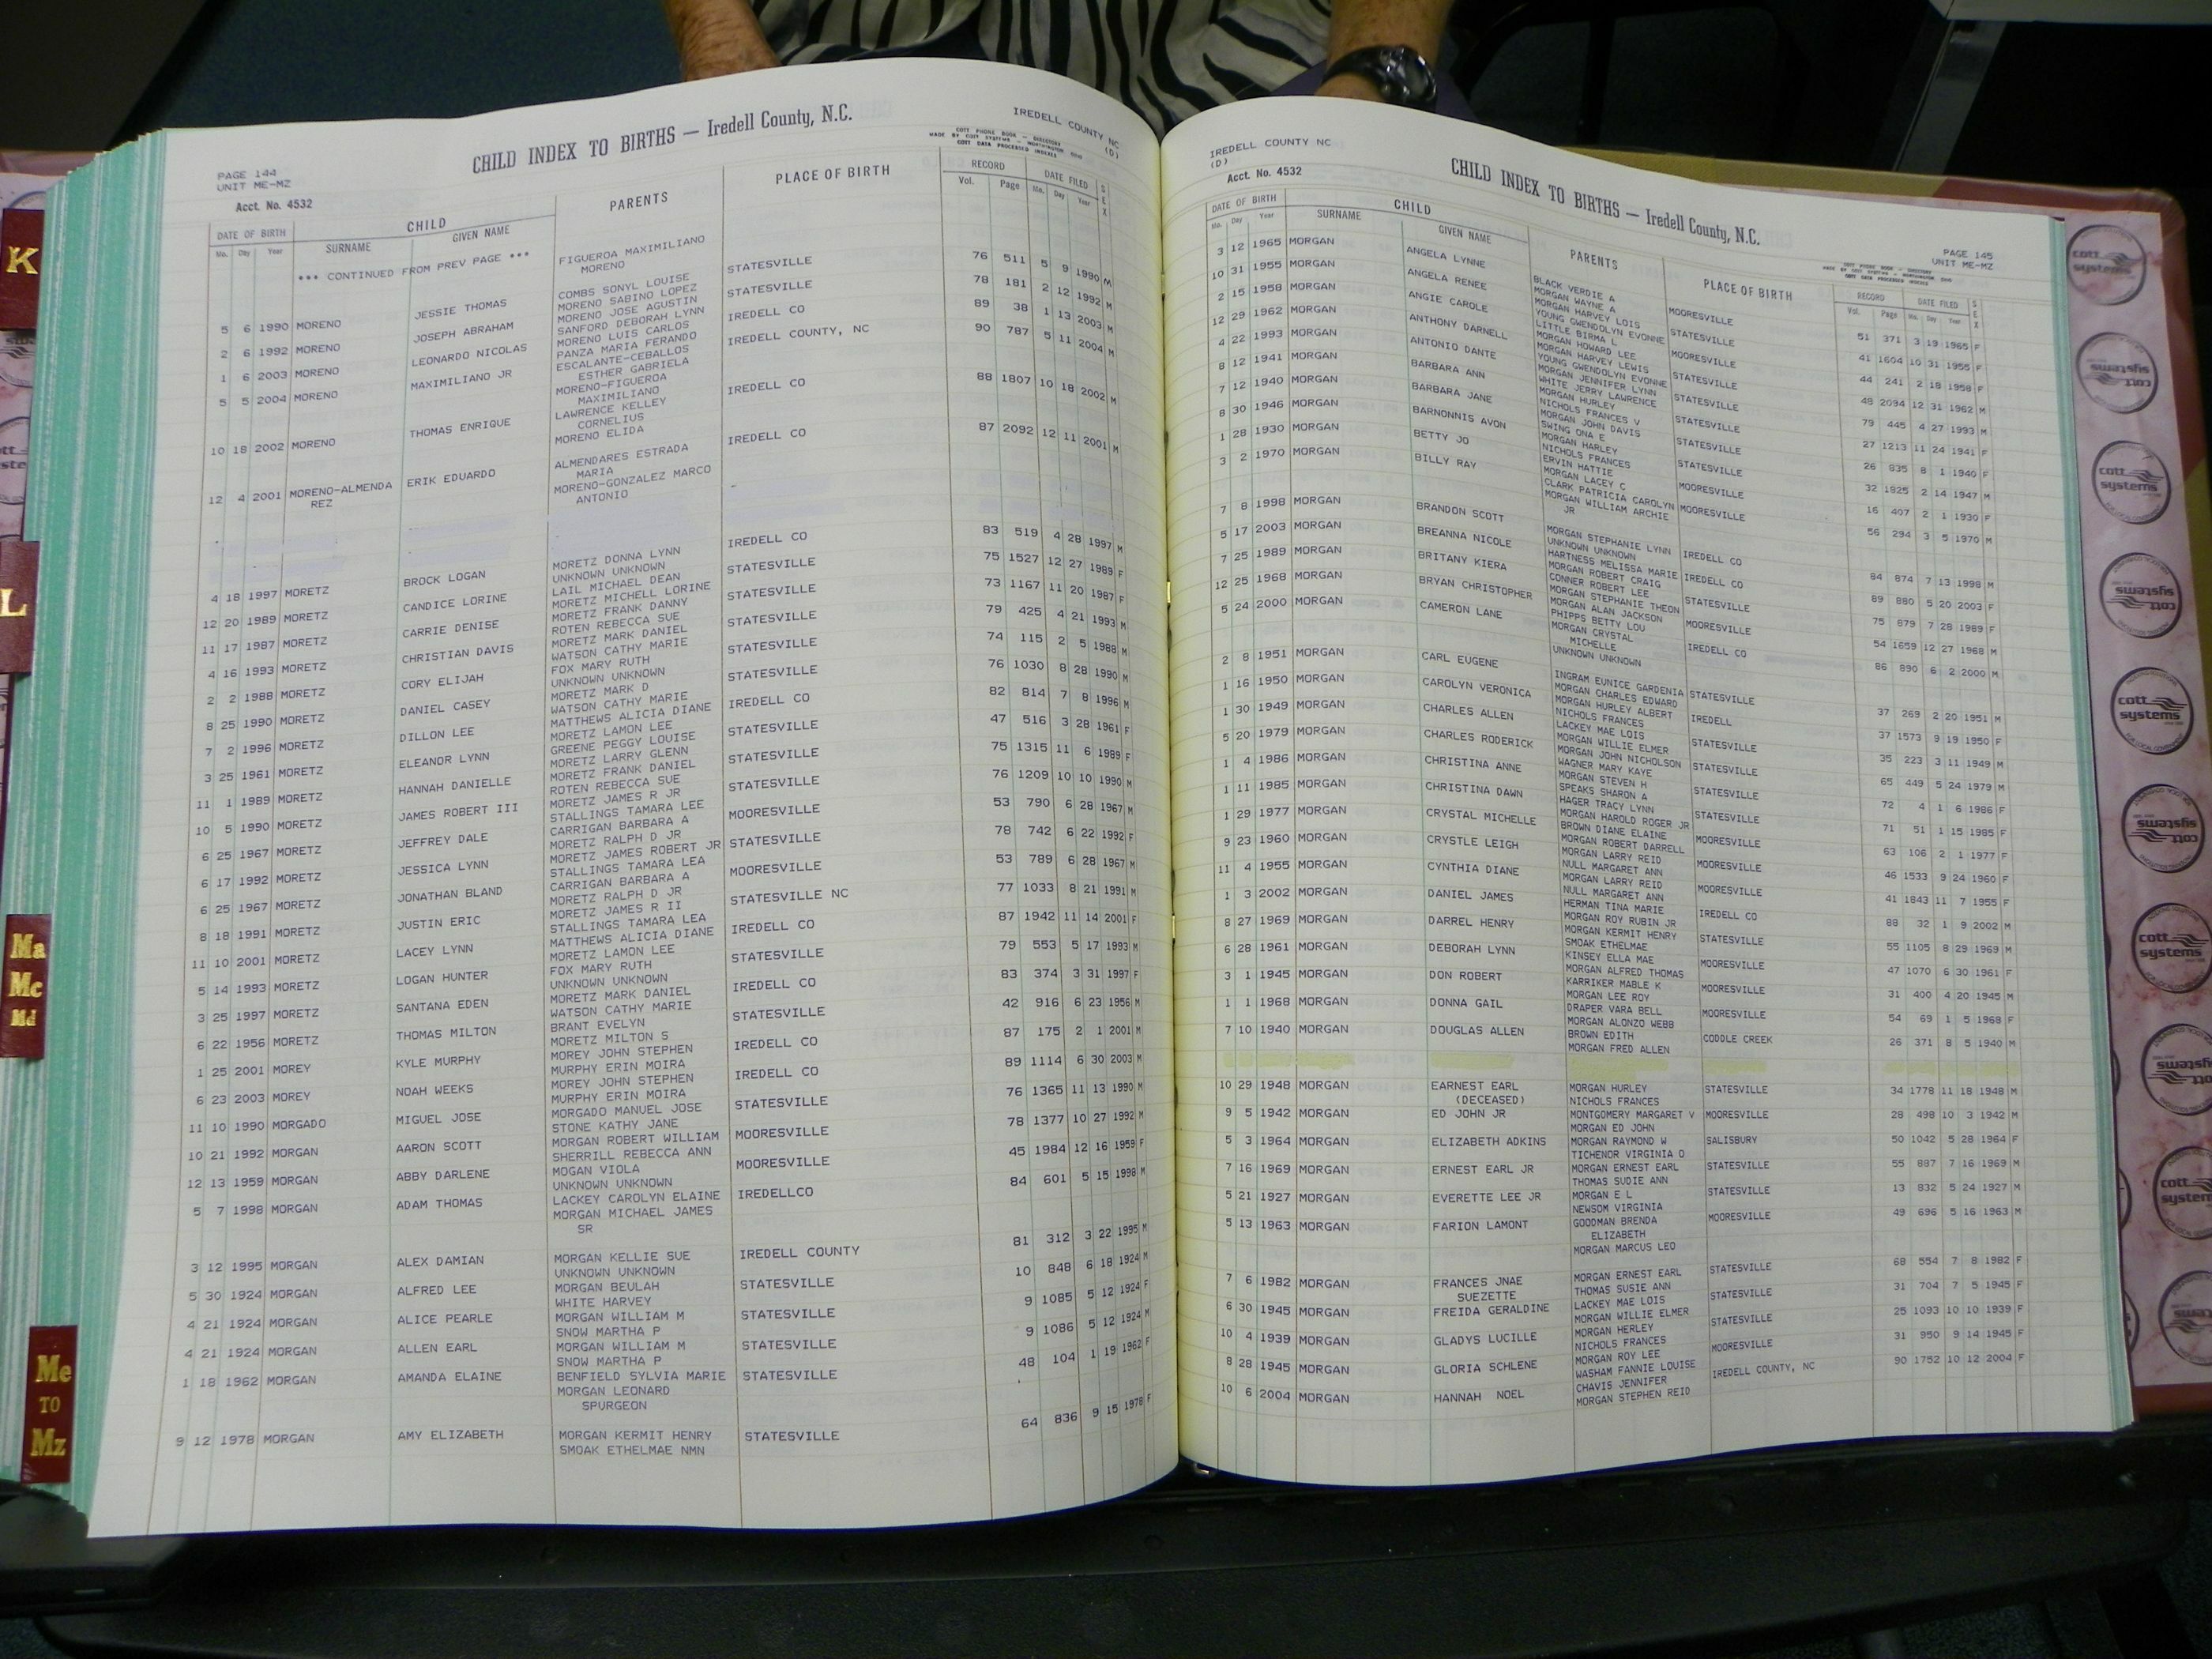 PAGE 144
UNIT ME-MZ
Acct. No. 4532
CHILD INDEX TO BIRTHS — Iredell County, N.C.
IREDELL COUNTY NC
(D)
COTT PHONE BOOK - DIRECTORY
MADE BY COTT SYSTEMS - WORTHINGTON OHIO
COTT DATA PROCESSED INDEXES
DATE OF BIRTH CHILD PARENTS PLACE OF BIRTH RECORD DATE FILED SEX
Mo. Day Year SURNAME GIVEN NAME Vol. Page Mo. Day Year
*** CONTINUED FROM PREV PAGE *** FIGUEROA MAXIMILIANO
MORENO
5 6 1990 MORENO JESSIE THOMAS COMBS SONYL LOUISE STATESVILLE 76 511 5 9 1990 M
MORENO SABINO LOPEZ
2 6 1992 MORENO JOSEPH ABRAHAM MORENO JOSE AGUSTIN STATESVILLE 78 181 2 12 1992 M
SANFORD DEBORAH LYNN
1 6 2003 MORENO LEONARDO NICOLAS MORENO LUIS CARLOS IREDELL CO 89 38 1 13 2003 M
PANZA MARIA FERANDO
5 5 2004 MORENO MAXIMILIANO JR ESCALANTE-CEBALLOS IREDELL COUNTY, NC 90 787 5 11 2004 M
ESTHER GABRIELA
MORENO-FIGUEROA
MAXIMILIANO
10 18 2002 MORENO THOMAS ENRIQUE LAWRENCE KELLEY IREDELL CO 88 1807 10 18 2002 M
CORNELIUS
MORENO ELIDA
12 4 2001 MORENO-ALMENDA ERIK EDUARDO ALMENDARES ESTRADA IREDELL CO 87 2092 12 11 2001 M
REZ MARIA
MORENO-GONZALEZ MARCO
ANTONIO
4 18 1997 MORETZ BROCK LOGAN MORETZ DONNA LYNN IREDELL CO 83 519 4 28 1997 M
UNKNOWN UNKNOWN
12 20 1989 MORETZ CANDICE LORINE LAIL MICHAEL DEAN STATESVILLE 75 1527 12 27 1989 F
MORETZ MICHELL LORINE
11 17 1987 MORETZ CARRIE DENISE MORETZ FRANK DANNY STATESVILLE 73 1167 11 20 1987 F
ROTEN REBECCA SUE
4 16 1993 MORETZ CHRISTIAN DAVIS MORETZ MARK DANIEL STATESVILLE 79 425 4 21 1993 M
WATSON CATHY MARIE
2 2 1988 MORETZ CORY ELIJAH FOX MARY RUTH STATESVILLE 74 115 2 5 1988 M
UNKNOWN UNKNOWN
8 25 1990 MORETZ DANIEL CASEY MORETZ MARK D STATESVILLE 76 1030 8 28 1990 M
WATSON CATHY MARIE
7 2 1996 MORETZ DILLON LEE MATTHEWS ALICIA DIANE IREDELL CO 82 814 7 8 1996 M
MORETZ LAMON LEE
3 25 1961 MORETZ ELEANOR LYNN GREENE PEGGY LOUISE STATESVILLE 47 516 3 28 1961 F
MORETZ LARRY GLENN
11 1 1989 MORETZ HANNAH DANIELLE MORETZ FRANK DANIEL STATESVILLE 75 1315 11 6 1989 F
ROTEN REBECCA SUE
10 5 1990 MORETZ JAMES ROBERT III MORETZ JAMES R JR STATESVILLE 76 1209 10 10 1990 M
STALLINGS TAMARA LEE
6 25 1967 MORETZ JEFFREY DALE CARRIGAN BARBARA A MOORESVILLE 53 790 6 28 1967 M
MORETZ RALPH D JR
6 17 1992 MORETZ JESSICA LYNN MORETZ JAMES ROBERT JR STATESVILLE 78 742 6 22 1992 F
STALLINGS TAMARA LEA
6 25 1967 MORETZ JONATHAN BLAND CARRIGAN BARBARA A MOORESVILLE 53 789 6 28 1967 M
MORETZ RALPH D JR
8 18 1991 MORETZ JUSTIN ERIC MORETZ JAMES R II STATESVILLE NC 77 1033 8 21 1991 M
STALLINGS TAMARA LEA
11 10 2001 MORETZ LACEY LYNN MATTHEWS ALICIA DIANE IREDELL CO 87 1942 11 14 2001 F
MORETZ LAMON LEE
5 14 1993 MORETZ LOGAN HUNTER FOX MARY RUTH STATESVILLE 79 553 5 17 1993 M
UNKNOWN UNKNOWN
3 25 1997 MORETZ SANTANA EDEN MORETZ MARK DANIEL IREDELL CO 83 374 3 31 1997 F
WATSON CATHY MARIE
6 22 1956 MORETZ THOMAS MILTON BRANT EVELYN STATESVILLE 42 916 6 23 1956 M
MORETZ MILTON S
1 25 2001 MOREY KYLE MURPHY MOREY JOHN STEPHEN IREDELL CO 87 175 2 1 2001 M
MURPHY ERIN MOIRA
6 23 2003 MOREY NOAH WEEKS MOREY JOHN STEPHEN IREDELL CO 89 1114 6 30 2003 M
MURPHY ERIN MOIRA
11 10 1990 MORGADO MIGUEL JOSE MORGADO MANUEL JOSE STATESVILLE 76 1365 11 13 1990 M
STONE KATHY JANE
10 21 1992 MORGAN AARON SCOTT MORGAN ROBERT WILLIAM MOORESVILLE 78 1377 10 27 1992 M
SHERRILL REBECCA ANN
12 13 1959 MORGAN ABBY DARLENE MOGAN VIOLA MOORESVILLE 45 1984 12 16 1959 F
UNKNOWN UNKNOWN
5 7 1998 MORGAN ADAM THOMAS LACKEY CAROLYN ELAINE IREDELLCO 84 601 5 15 1998 M
MORGAN MICHAEL JAMES
SR
3 12 1995 MORGAN ALEX DAMIAN MORGAN KELLIE SUE IREDELL COUNTY 81 312 3 22 1995 M
UNKNOWN UNKNOWN
5 30 1924 MORGAN ALFRED LEE MORGAN BEULAH STATESVILLE 10 848 6 18 1924 M
WHITE HARVEY
4 21 1924 MORGAN ALICE PEARLE MORGAN WILLIAM M STATESVILLE 9 1085 5 12 1924 F
SNOW MARTHA P
4 21 1924 MORGAN ALLEN EARL MORGAN WILLIAM M STATESVILLE 9 1086 5 12 1924 M
SNOW MARTHA P
1 18 1962 MORGAN AMANDA ELAINE BENFIELD SYLVIA MARIE STATESVILLE 48 104 1 19 1962 F
MORGAN LEONARD
SPURGEON
9 12 1978 MORGAN AMY ELIZABETH MORGAN KERMIT HENRY STATESVILLE 64 836 9 15 1978 F
SMOAK ETHELMAE NMN
IREDELL COUNTY NC
(D)
Acct. No. 4532
CHILD INDEX TO BIRTHS — Iredell County, N.C.
PAGE 145
UNIT ME-MZ
DATE OF BIRTH CHILD PARENTS PLACE OF BIRTH RECORD DATE FILED SEX
Mo. Day Year SURNAME GIVEN NAME Vol. Page Mo. Day Year
3 12 1965 MORGAN ANGELA LYNNE BLACK VERDIE A MOORESVILLE 51 371 3 19 1965 F
MORGAN WAYNE A
10 31 1955 MORGAN ANGELA RENEE MORGAN HARVEY LOIS STATESVILLE 41 1604 10 31 1955 F
YOUNG GWENDOLYN EVONNE
2 15 1958 MORGAN ANGIE CAROLE LITTLE BIRMA L MOORESVILLE 44 241 2 18 1958 F
MORGAN HOWARD LEE
12 29 1962 MORGAN ANTHONY DARNELL MORGAN HARVEY LEWIS STATESVILLE 49 2094 12 31 1962 M
YOUNG GWENDOLYN EVONNE
4 22 1993 MORGAN ANTONIO DANTE MORGAN JENNIFER LYNN STATESVILLE 79 445 4 27 1993 M
WHITE JERRY LAWRENCE
8 12 1941 MORGAN BARBARA ANN MORGAN HURLEY STATESVILLE 27 1213 11 24 1941 F
NICHOLS FRANCES V
7 12 1940 MORGAN BARBARA JANE MORGAN JOHN DAVIS STATESVILLE 26 835 8 1 1940 F
SWING ONA E
8 30 1946 MORGAN BARNONNIS AVON MORGAN HARLEY MOORESVILLE 32 1825 2 14 1947 M
NICHOLS FRANCES
1 28 1930 MORGAN BETTY JO ERVIN HATTIE MOORESVILLE 16 407 2 1 1930 F
MORGAN LACEY C
3 2 1970 MORGAN BILLY RAY CLARK PATRICIA CAROLYN 56 294 3 5 1970 M
MORGAN WILLIAM ARCHIE
JR
7 8 1998 MORGAN BRANDON SCOTT MORGAN STEPHANIE LYNN IREDELL CO 84 874 7 13 1998 M
UNKNOWN UNKNOWN
5 17 2003 MORGAN BREANNA NICOLE HARTNESS MELISSA MARIE IREDELL CO 89 880 5 20 2003 F
MORGAN ROBERT CRAIG
7 25 1989 MORGAN BRITANY KIERA CONNER ROBERT LEE STATESVILLE 75 879 7 28 1989 F
MORGAN STEPHANIE THEON
12 25 1968 MORGAN BRYAN CHRISTOPHER MORGAN ALAN JACKSON MOORESVILLE 54 1659 12 27 1968 M
PHIPPS BETTY LOU
5 24 2000 MORGAN CAMERON LANE MORGAN CRYSTAL IREDELL CO 86 890 6 2 2000 M
MICHELLE
UNKNOWN UNKNOWN
2 8 1951 MORGAN CARL EUGENE INGRAM EUNICE GARDENIA STATESVILLE 37 269 2 20 1951 M
MORGAN CHARLES EDWARD
1 16 1950 MORGAN CAROLYN VERONICA MORGAN HURLEY ALBERT IREDELL 37 1573 9 19 1950 F
NICHOLS FRANCES
1 30 1949 MORGAN CHARLES ALLEN LACKEY MAE LOIS STATESVILLE 35 223 3 11 1949 M
MORGAN WILLIE ELMER
5 20 1979 MORGAN CHARLES RODERICK MORGAN JOHN NICHOLSON STATESVILLE 65 449 5 24 1979 M
WAGNER MARY KAYE
1 4 1986 MORGAN CHRISTINA ANNE MORGAN STEVEN H STATESVILLE 72 4 1 6 1986 F
SPEAKS SHARON A
1 11 1985 MORGAN CHRISTINA DAWN HAGER TRACY LYNN STATESVILLE 71 51 1 15 1985 F
MORGAN HAROLD ROGER JR
1 29 1977 MORGAN CRYSTAL MICHELLE BROWN DIANE ELAINE MOORESVILLE 63 106 2 1 1977 F
MORGAN ROBERT DARRELL
9 23 1960 MORGAN CRYSTLE LEIGH MORGAN LARRY REID MOORESVILLE 46 1533 9 24 1960 F
NULL MARGARET ANN
11 4 1955 MORGAN CYNTHIA DIANE MORGAN LARRY REID MOORESVILLE 41 1843 11 7 1955 F
NULL MARGARET ANN
1 3 2002 MORGAN DANIEL JAMES HERMAN TINA MARIE IREDELL CO 88 32 1 9 2002 M
MORGAN ROY RUBIN JR
8 27 1969 MORGAN DARREL HENRY MORGAN KERMIT HENRY STATESVILLE 55 1105 8 29 1969 M
SMOAK ETHELMAE
6 28 1961 MORGAN DEBORAH LYNN KINSEY ELLA MAE MOORESVILLE 47 1070 6 30 1961 F
MORGAN ALFRED THOMAS
3 1 1945 MORGAN DON ROBERT KARRIKER MABLE K MOORESVILLE 31 400 4 20 1945 M
MORGAN LEE ROY
1 1 1968 MORGAN DONNA GAIL DRAPER VARA BELL MOORESVILLE 54 69 1 5 1968 F
MORGAN ALONZO WEBB
7 10 1940 MORGAN DOUGLAS ALLEN BROWN EDITH CODDLE CREEK 26 371 8 5 1940 M
MORGAN FRED ALLEN
10 29 1948 MORGAN EARNEST EARL MORGAN HURLEY STATESVILLE 34 1778 11 18 1948 M
(DECEASED) NICHOLS FRANCES
9 5 1942 MORGAN ED JOHN JR MONTGOMERY MARGARET V MOORESVILLE 28 498 10 3 1942 M
MORGAN ED JOHN
5 3 1964 MORGAN ELIZABETH ADKINS MORGAN RAYMOND W SALISBURY 50 1042 5 28 1964 F
TICHENOR VIRGINIA O
7 16 1969 MORGAN ERNEST EARL JR MORGAN ERNEST EARL STATESVILLE 55 887 7 16 1969 M
THOMAS SUDIE ANN
5 21 1927 MORGAN EVERETTE LEE JR MORGAN E L STATESVILLE 13 832 5 24 1927 M
NEWSOM VIRGINIA
5 13 1963 MORGAN FARION LAMONT GOODMAN BRENDA MOORESVILLE 49 696 5 16 1963 M
ELIZABETH
MORGAN MARCUS LEO
7 6 1982 MORGAN FRANCES JNAE MORGAN ERNEST EARL STATESVILLE 68 554 7 8 1982 F
SUEZETTE THOMAS SUSIE ANN
6 30 1945 MORGAN FREIDA GERALDINE LACKEY MAE LOIS STATESVILLE 31 704 7 5 1945 F
MORGAN WILLIE ELMER
10 4 1939 MORGAN GLADYS LUCILLE MORGAN HERLEY STATESVILLE 25 1093 10 10 1939 F
NICHOLS FRANCES
8 28 1945 MORGAN GLORIA SCHLENE MORGAN ROY LEE MOORESVILLE 31 950 9 14 1945 F
WASHAM FANNIE LOUISE
10 6 2004 MORGAN HANNAH NOEL CHAVIS JENNIFER IREDELL COUNTY, NC 90 1752 10 12 2004 F
MORGAN STEPHEN REID
K
L
Ma
Mc
Md
Me
TO
Mz
cott
systems